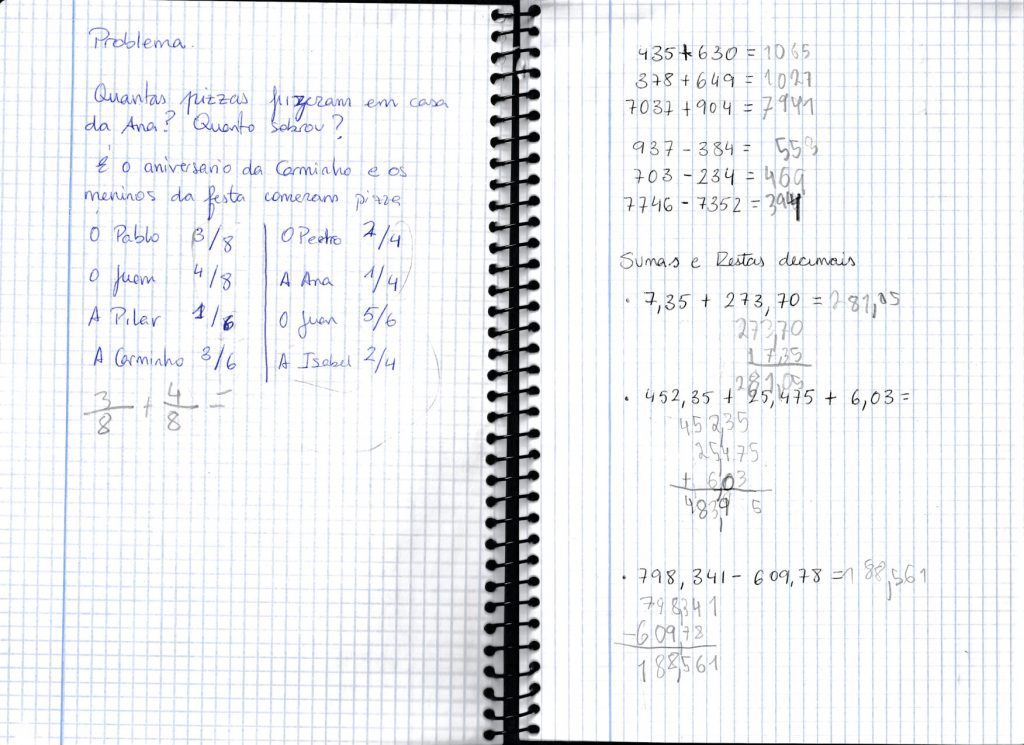 Problema.
Quantas pizzas fizeram em casa
da Ana? Quanto sobrou?
É o aniversario da Carminho e os
meninos da festa comeram pizza
O Pablo 3/8 | O Pedro 2/4
O Juan 4/8 | A Ana 1/4
A Pilar 1/6 | O Juan 5/6
A Carminho 3/6 | A Isabel 2/4
3/8 + 4/8 =
435 + 630 = 1065
378 + 649 = 1027
7037 + 904 = 7941
937 - 384 = 553
703 - 234 = 469
7746 - 7352 = 394
Sumas e Restas decimais
· 7,35 + 273,70 = 281,05
273,70
17,35
281,05
· 452,35 + 25,475 + 6,03 =
452,35
25,475
+ 6,03
483,9 5
· 798,341 - 609,78 = 188,561
798,341
-609,78
188,561